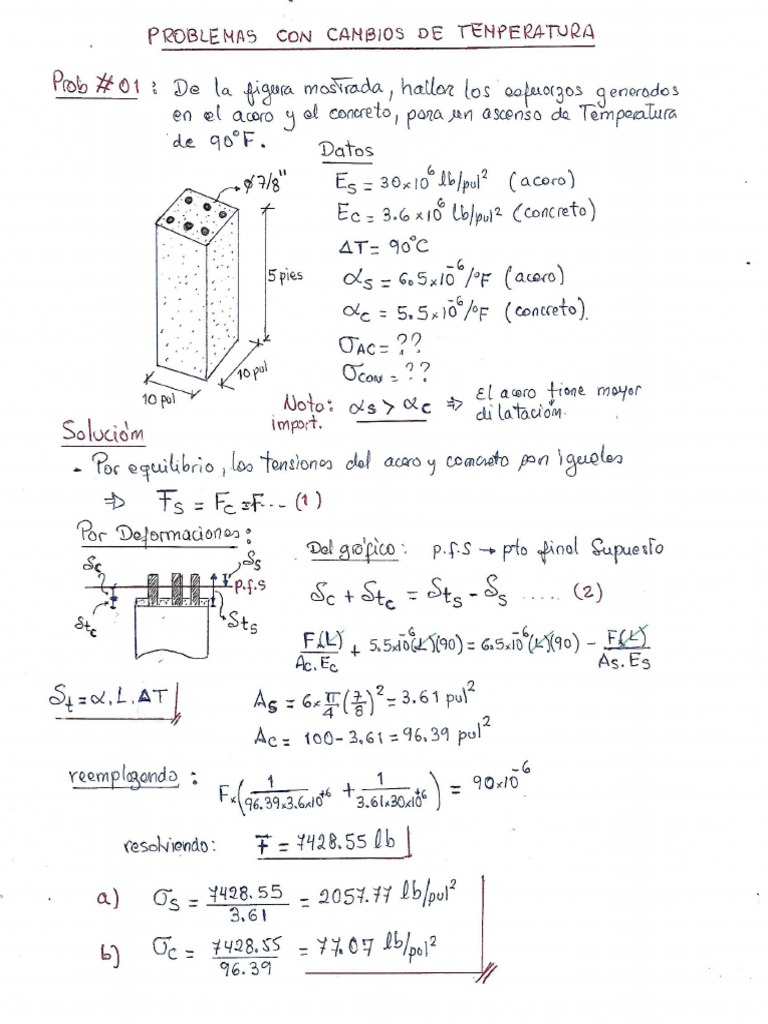 PROBLEMAS CON CAMBIOS DE TEMPERATURA
Prob #01: De la figura mostrada, hallar los esfuerzos generados
en el acero y el concreto, para un ascenso de Temperatura
de 90°F.
Datos
Es = 30x10⁶ lb/pul² (acero)
Ec = 3.6x10⁶ lb/pul² (concreto)
ΔT = 90°C
αs = 6.5x10⁻⁶/°F (acero)
αc = 5.5x10⁻⁶/°F (concreto).
σAC = ??
σCON = ??
ø 7/8"
5 pies
10 pol
10 pol
Nota: αs > αc ⇒ El acero tiene mayor
import. dilatación.
Solución
- Por equilibrio, las tensiones del acero y concreto son iguales
⇒ Fs = Fc = F... (1)
Por Deformaciones:
δc
δs
p.f.s
δtc
δts
Del gráfico: p.f.s → pto final Supuesto
δc + δtc = δts - δs ..... (2)
F.(L)/Ac.Ec + 5.5x10⁻⁶(L)(90) = 6.5x10⁻⁶(L)(90) - F(L)/As.Es
δt = α.L.ΔT
As = 6x π/4 (7/8)² = 3.61 pul²
Ac = 100 - 3.61 = 96.39 pul²
reemplazando: Fx(1/96.39x3.6x10⁺⁶ + 1/3.61x30x10⁶) = 90x10⁻⁶
resolviendo: F = 7428.55 lb
a) σs = 7428.55/3.61 = 2057.77 lb/pul²
b) σc = 7428.55/96.39 = 77.07 lb/pol²